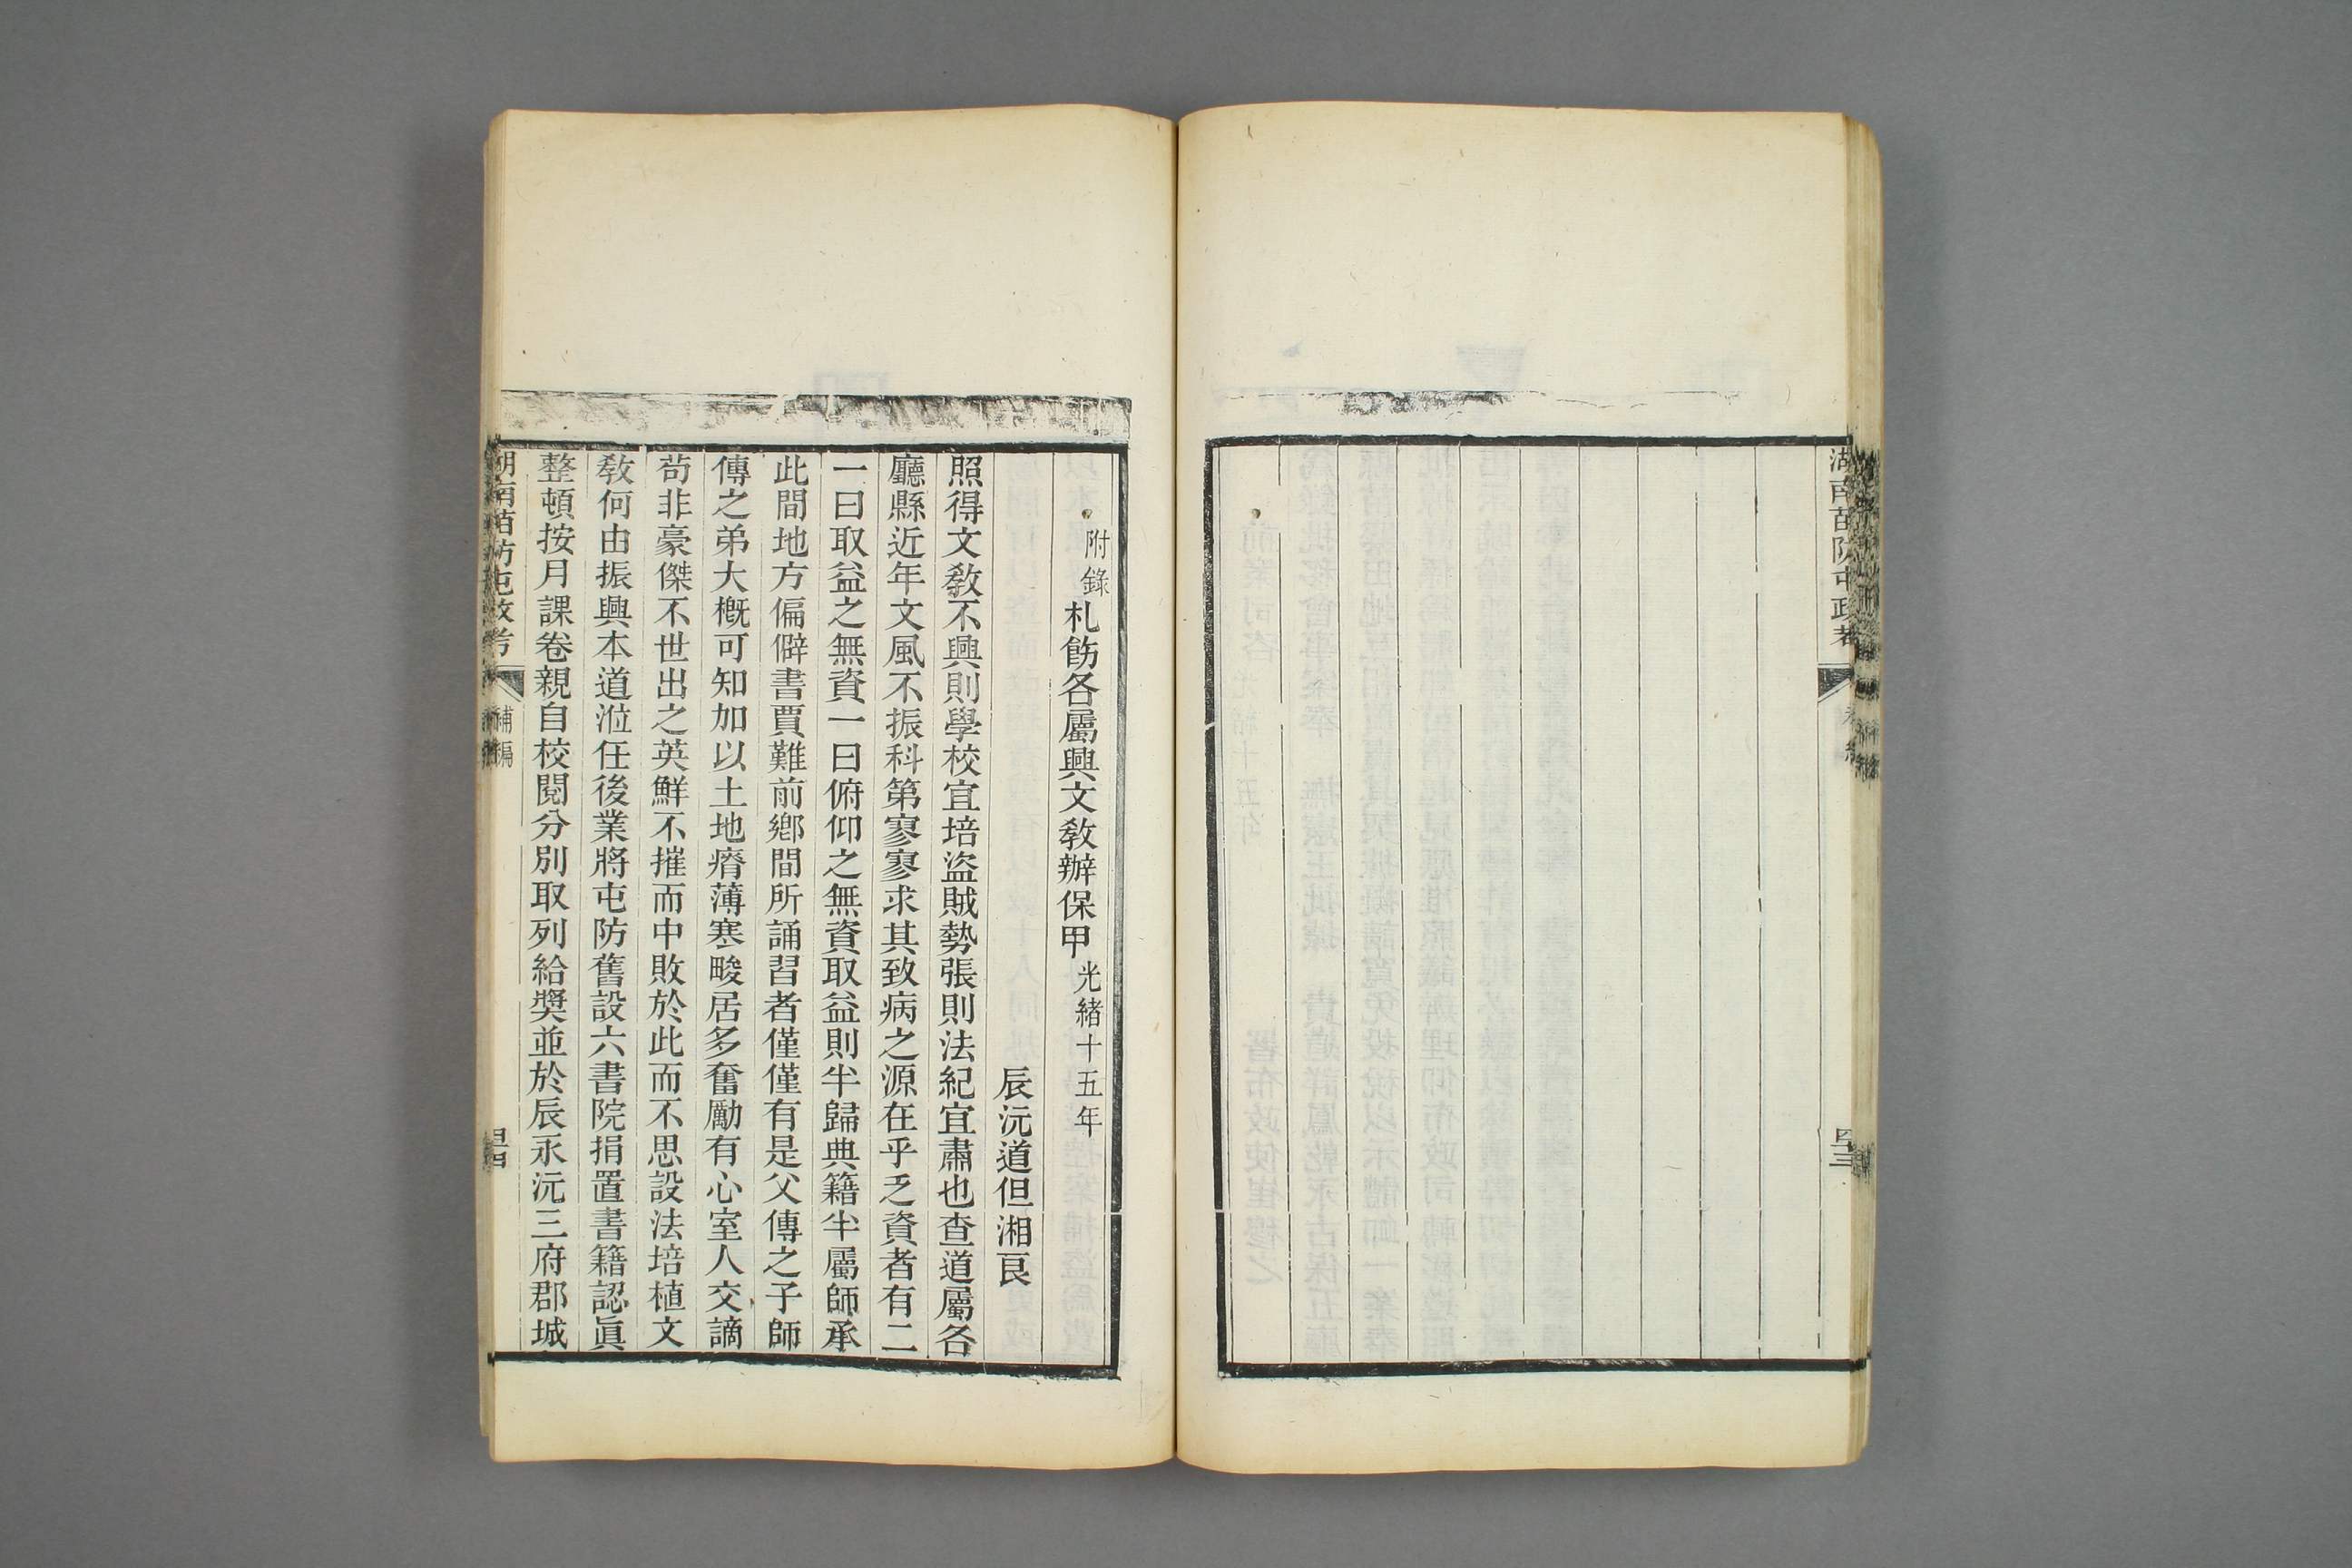 湖南苗防屯政考
四三
附錄札飭各屬興文敎辦保甲光緒十五年
辰沅道但湘良
照得文敎不興則學校宜培盜賊勢張則法紀宜肅也查道屬各
廳縣近年文風不振科第寥寥求其致病之源在乎乏資者有二
一曰取益之無資一曰俯仰之無資取益則半歸典籍半屬師承
此間地方偏僻書賈難前鄉間所誦習者僅僅有是父傳之子師
傳之弟大槪可知加以土地瘠薄寒畯居多奮勵有心室人交謫
苟非豪傑不世出之英鮮不摧而中敗於此而不思設法培植文
敎何由振興本道涖任後業將屯防舊設六書院捐置書籍認眞
整頓按月課卷親自校閱分別取列給獎並於辰永沅三府郡城
湖南苗防屯政考
補編